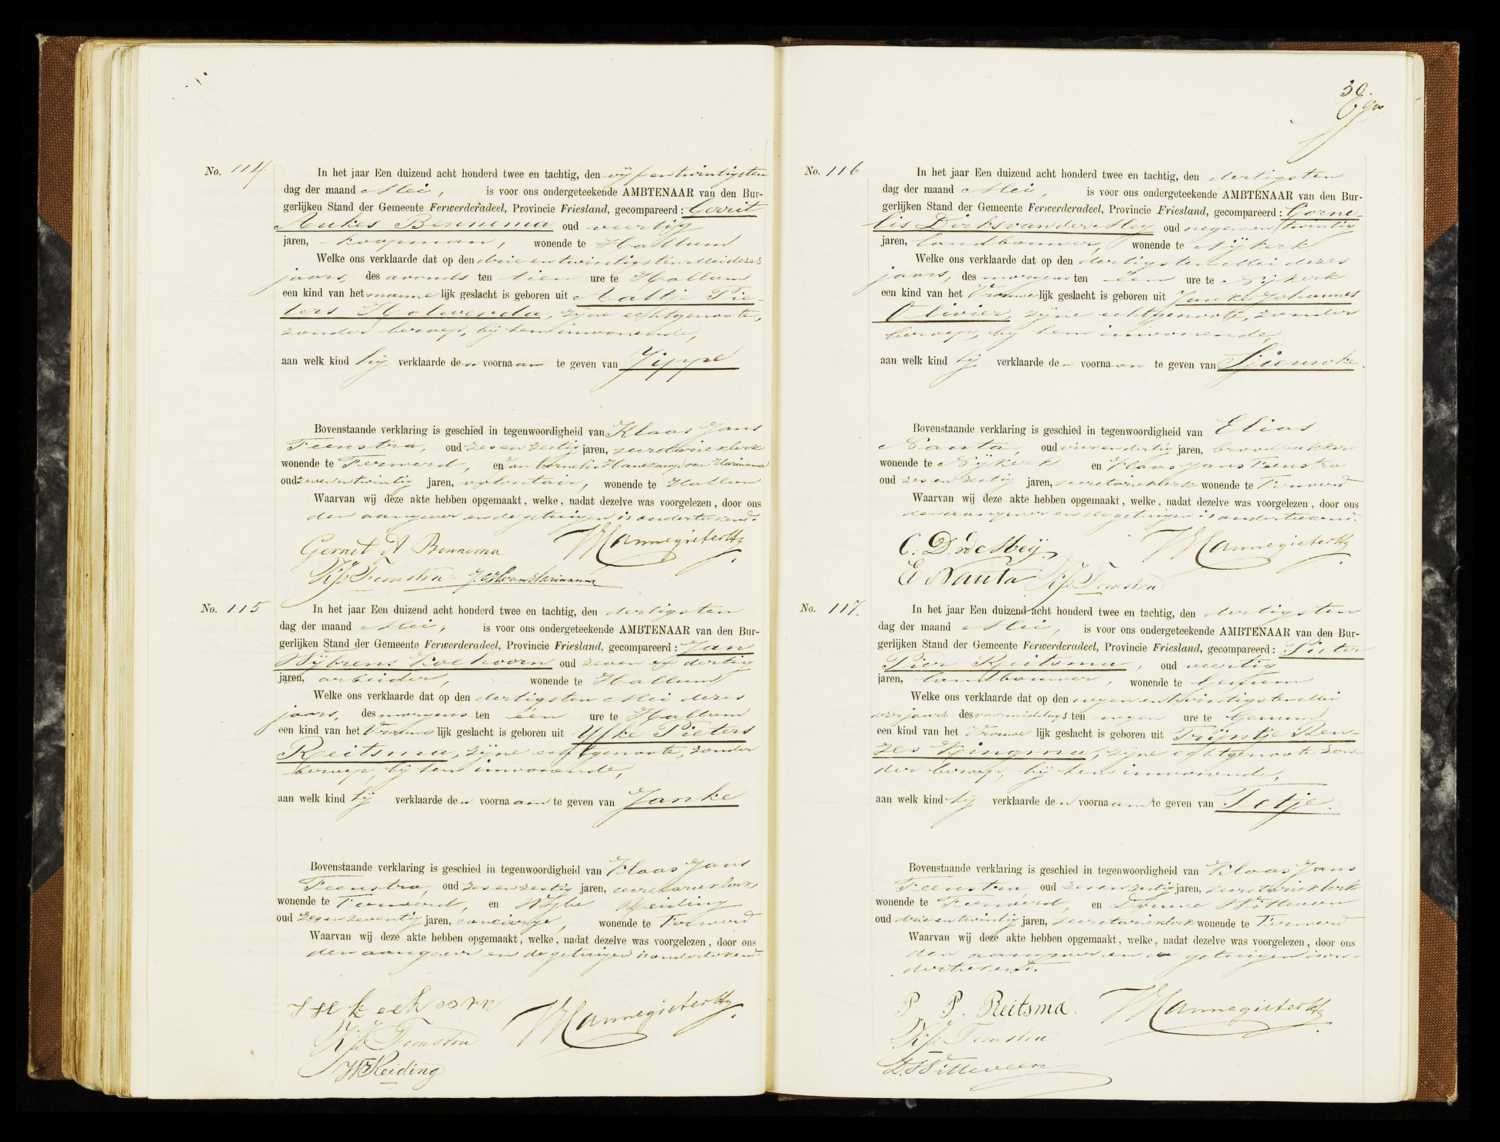 No. 114
In het jaar Een duizend acht honderd twee en tachtig, den vijf en twintigsten
dag der maand Mei, is voor ons ondergeteekende AMBTENAAR van den Bur-
gerlijken Stand der Gemeente Ferwerderadeel, Provincie Friesland, gecompareerd: Gerrit
Aukes Bennema oud veertig
jaren, koopman, wonende te Hallum
Welke ons verklaarde dat op den drie en twintigsten Mei dezes
jaars, des avonds ten tien ure te Hallum
een kind van het mannelijk geslacht is geboren uit Pie-
ters zijne echtgenoote,
zonder beroep, bij hem inwonende,
aan welk kind hij verklaarde den voornaam te geven van Jippe
Bovenstaande verklaring is geschied in tegenwoordigheid van Klaas Jans
Feenstra, oud zes en zestig jaren, secretarieklerk
wonende te Ferwerd, en Jan Cornelis Hanekamp van Harinxma
oud twee en twintig jaren, volontair, wonende te Hallum
Waarvan wij deze akte hebben opgemaakt, welke, nadat dezelve was voorgelezen, door ons
den aangever en de getuigen is onderteekend.
Gerrit A Bennema WCannegieter
KJ Feenstra
No. 115
In het jaar Een duizend acht honderd twee en tachtig, den dertigsten
dag der maand Mei, is voor ons ondergeteekende AMBTENAAR van den Bur-
gerlijken Stand der Gemeente Ferwerderadeel, Provincie Friesland, gecompareerd: Jan
Wijbrens Koekoorn oud zeven en dertig
jaren, arbeider, wonende te Hallum
Welke ons verklaarde dat op den dertigsten Mei dezes
jaars, des morgens ten één ure te Hallum
een kind van het Vrouwelijk geslacht is geboren uit Ytke Pieters
Reitsma, zijne echtgenoote, zonder
beroep, bij hem inwonende,
aan welk kind hij verklaarde den voornaam te geven van Janke
Bovenstaande verklaring is geschied in tegenwoordigheid van Klaas Jans
Feenstra, oud zes en zestig jaren, secretarieklerk
wonende te Ferwerd, en Reiding
oud jaren, concierge, wonende te Ferwerd
Waarvan wij deze akte hebben opgemaakt, welke, nadat dezelve was voorgelezen, door ons
den aangever en de getuigen is onderteekend.
J W koekoorn WCannegieter
KJ Feenstra
W Reiding
30.
No. 116
In het jaar Een duizend acht honderd twee en tachtig, den dertigsten
dag der maand Mei, is voor ons ondergeteekende AMBTENAAR van den Bur-
gerlijken Stand der Gemeente Ferwerderadeel, Provincie Friesland, gecompareerd: Corne-
lis Dirks van der Meij oud negen en twintig
jaren, landbouwer, wonende te Nijkerk
Welke ons verklaarde dat op den dertigsten Mei dezes
jaars, des morgens ten één ure te Nijkerk
een kind van het Vrouwelijk geslacht is geboren uit Janke Johannes
Olivier, zijne echtgenoote, zonder
beroep, bij hem inwonende,
aan welk kind hij verklaarde den voornaam te geven van
Bovenstaande verklaring is geschied in tegenwoordigheid van Elias
Nauta, oud jaren, broodbakker
wonende te Nijkerk en Klaas Jans Feenstra
oud zes en zestig jaren, secretarieklerk wonende te Ferwerd
Waarvan wij deze akte hebben opgemaakt, welke, nadat dezelve was voorgelezen, door ons
den aangever en de getuigen is onderteekend.
C. D vd Meij WCannegieter
E Nauta KJ Feenstra
No. 117.
In het jaar Een duizend acht honderd twee en tachtig, den dertigsten
dag der maand Mei, is voor ons ondergeteekende AMBTENAAR van den Bur-
gerlijken Stand der Gemeente Ferwerderadeel, Provincie Friesland, gecompareerd: Pieter
Pier Reitsma, oud veertig
jaren, landbouwer, wonende te Genum
Welke ons verklaarde dat op den negen en twintigsten Mei
dezes jaars des voormiddags ten negen ure te Genum
een kind van het Vrouwelijk geslacht is geboren uit Trijntje Ren-
zes Kingma, zijne echtgenoote zon-
der beroep, bij hem inwonende,
aan welk kind hij verklaarde den voornaam te geven van Tetje.
Bovenstaande verklaring is geschied in tegenwoordigheid van Klaas Jans
Feenstra, oud zes en zestig jaren, secretarieklerk
wonende te Ferwerd, en Douwe Witteveen
oud drie en twintig jaren, secretarieklerk wonende te Ferwerd
Waarvan wij deze akte hebben opgemaakt, welke, nadat dezelve was voorgelezen, door ons
den aangever en de getuigen is on-
derteekend.
P. P. Reitsma. WCannegieter
KJ Feenstra
D. Witteveen